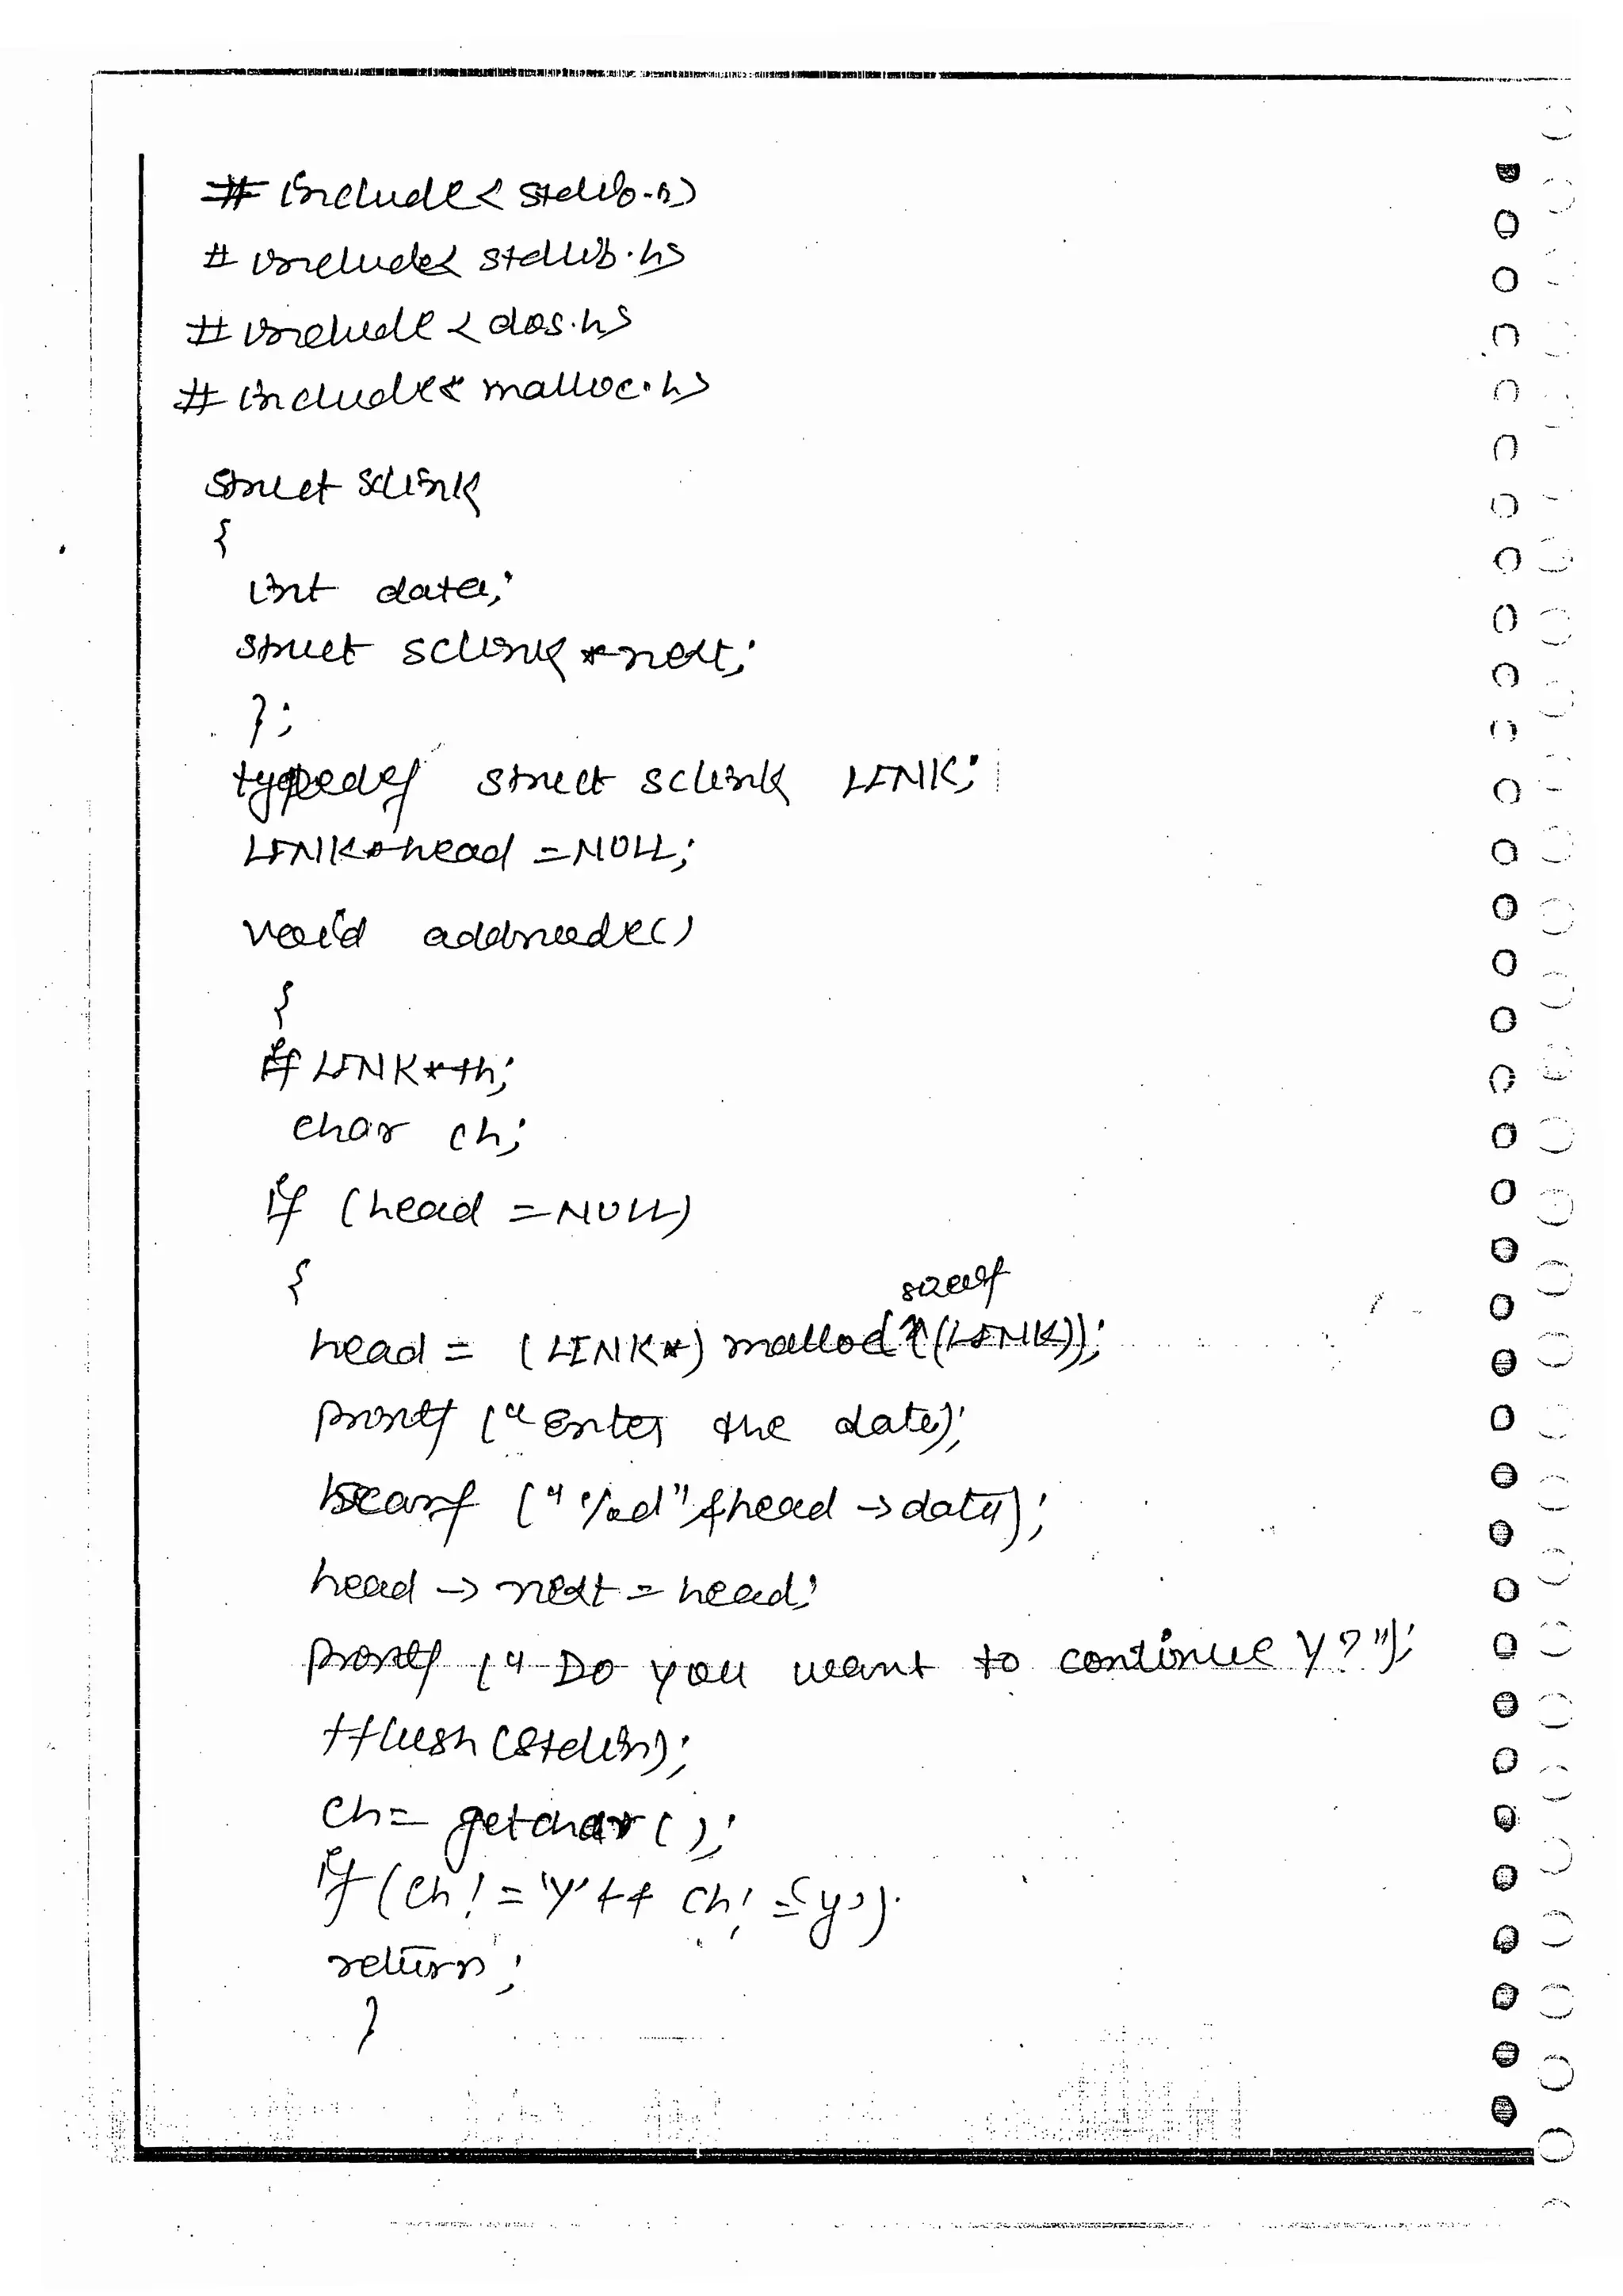 # include< stdlib.h>
# include< stdlib.h>
# include < dos.h>
# include< malloc.h>
struct sclink
{
int data;
struct sclink *next;
};
typedef struct sclink LINK;
LINK*head = NULL;
void addnode()
{
LINK*th;
char ch;
if (head = NULL)
{
sizeof
head = (LINK*) malloc((LINK));
printf ("Enter the data);
scanf ("%d",&head → data);
head → next = head;
printf ("Do you want to continue y?");
fflush (stdin);
ch = getchar ( );
if (ch! = 'y' && ch! = 'y')
return ;
}